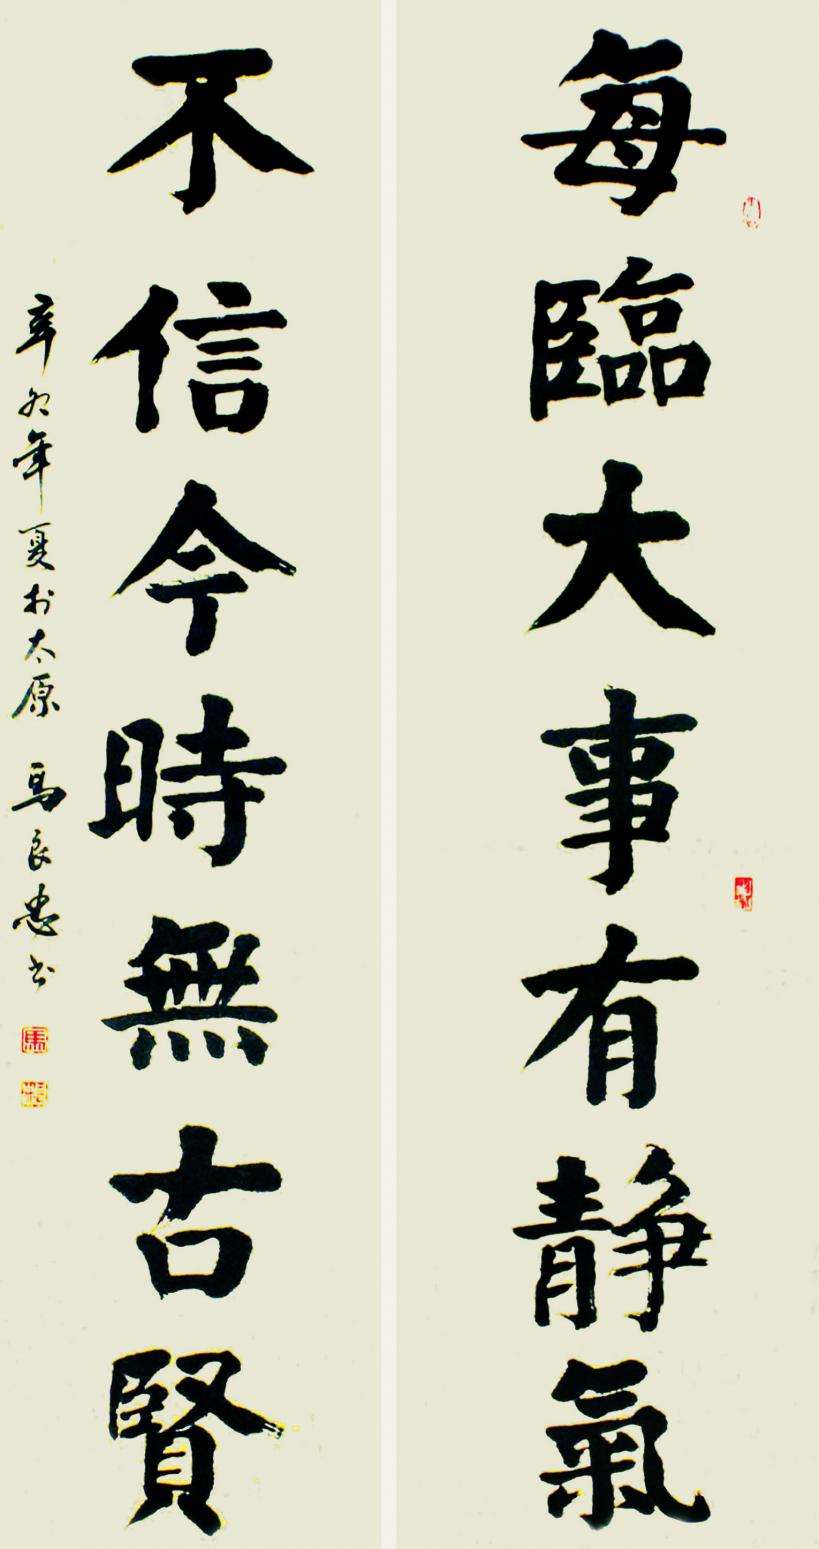 每臨大事有静氣
不信今時無古賢
辛卯年夏於太原 馬良忠書